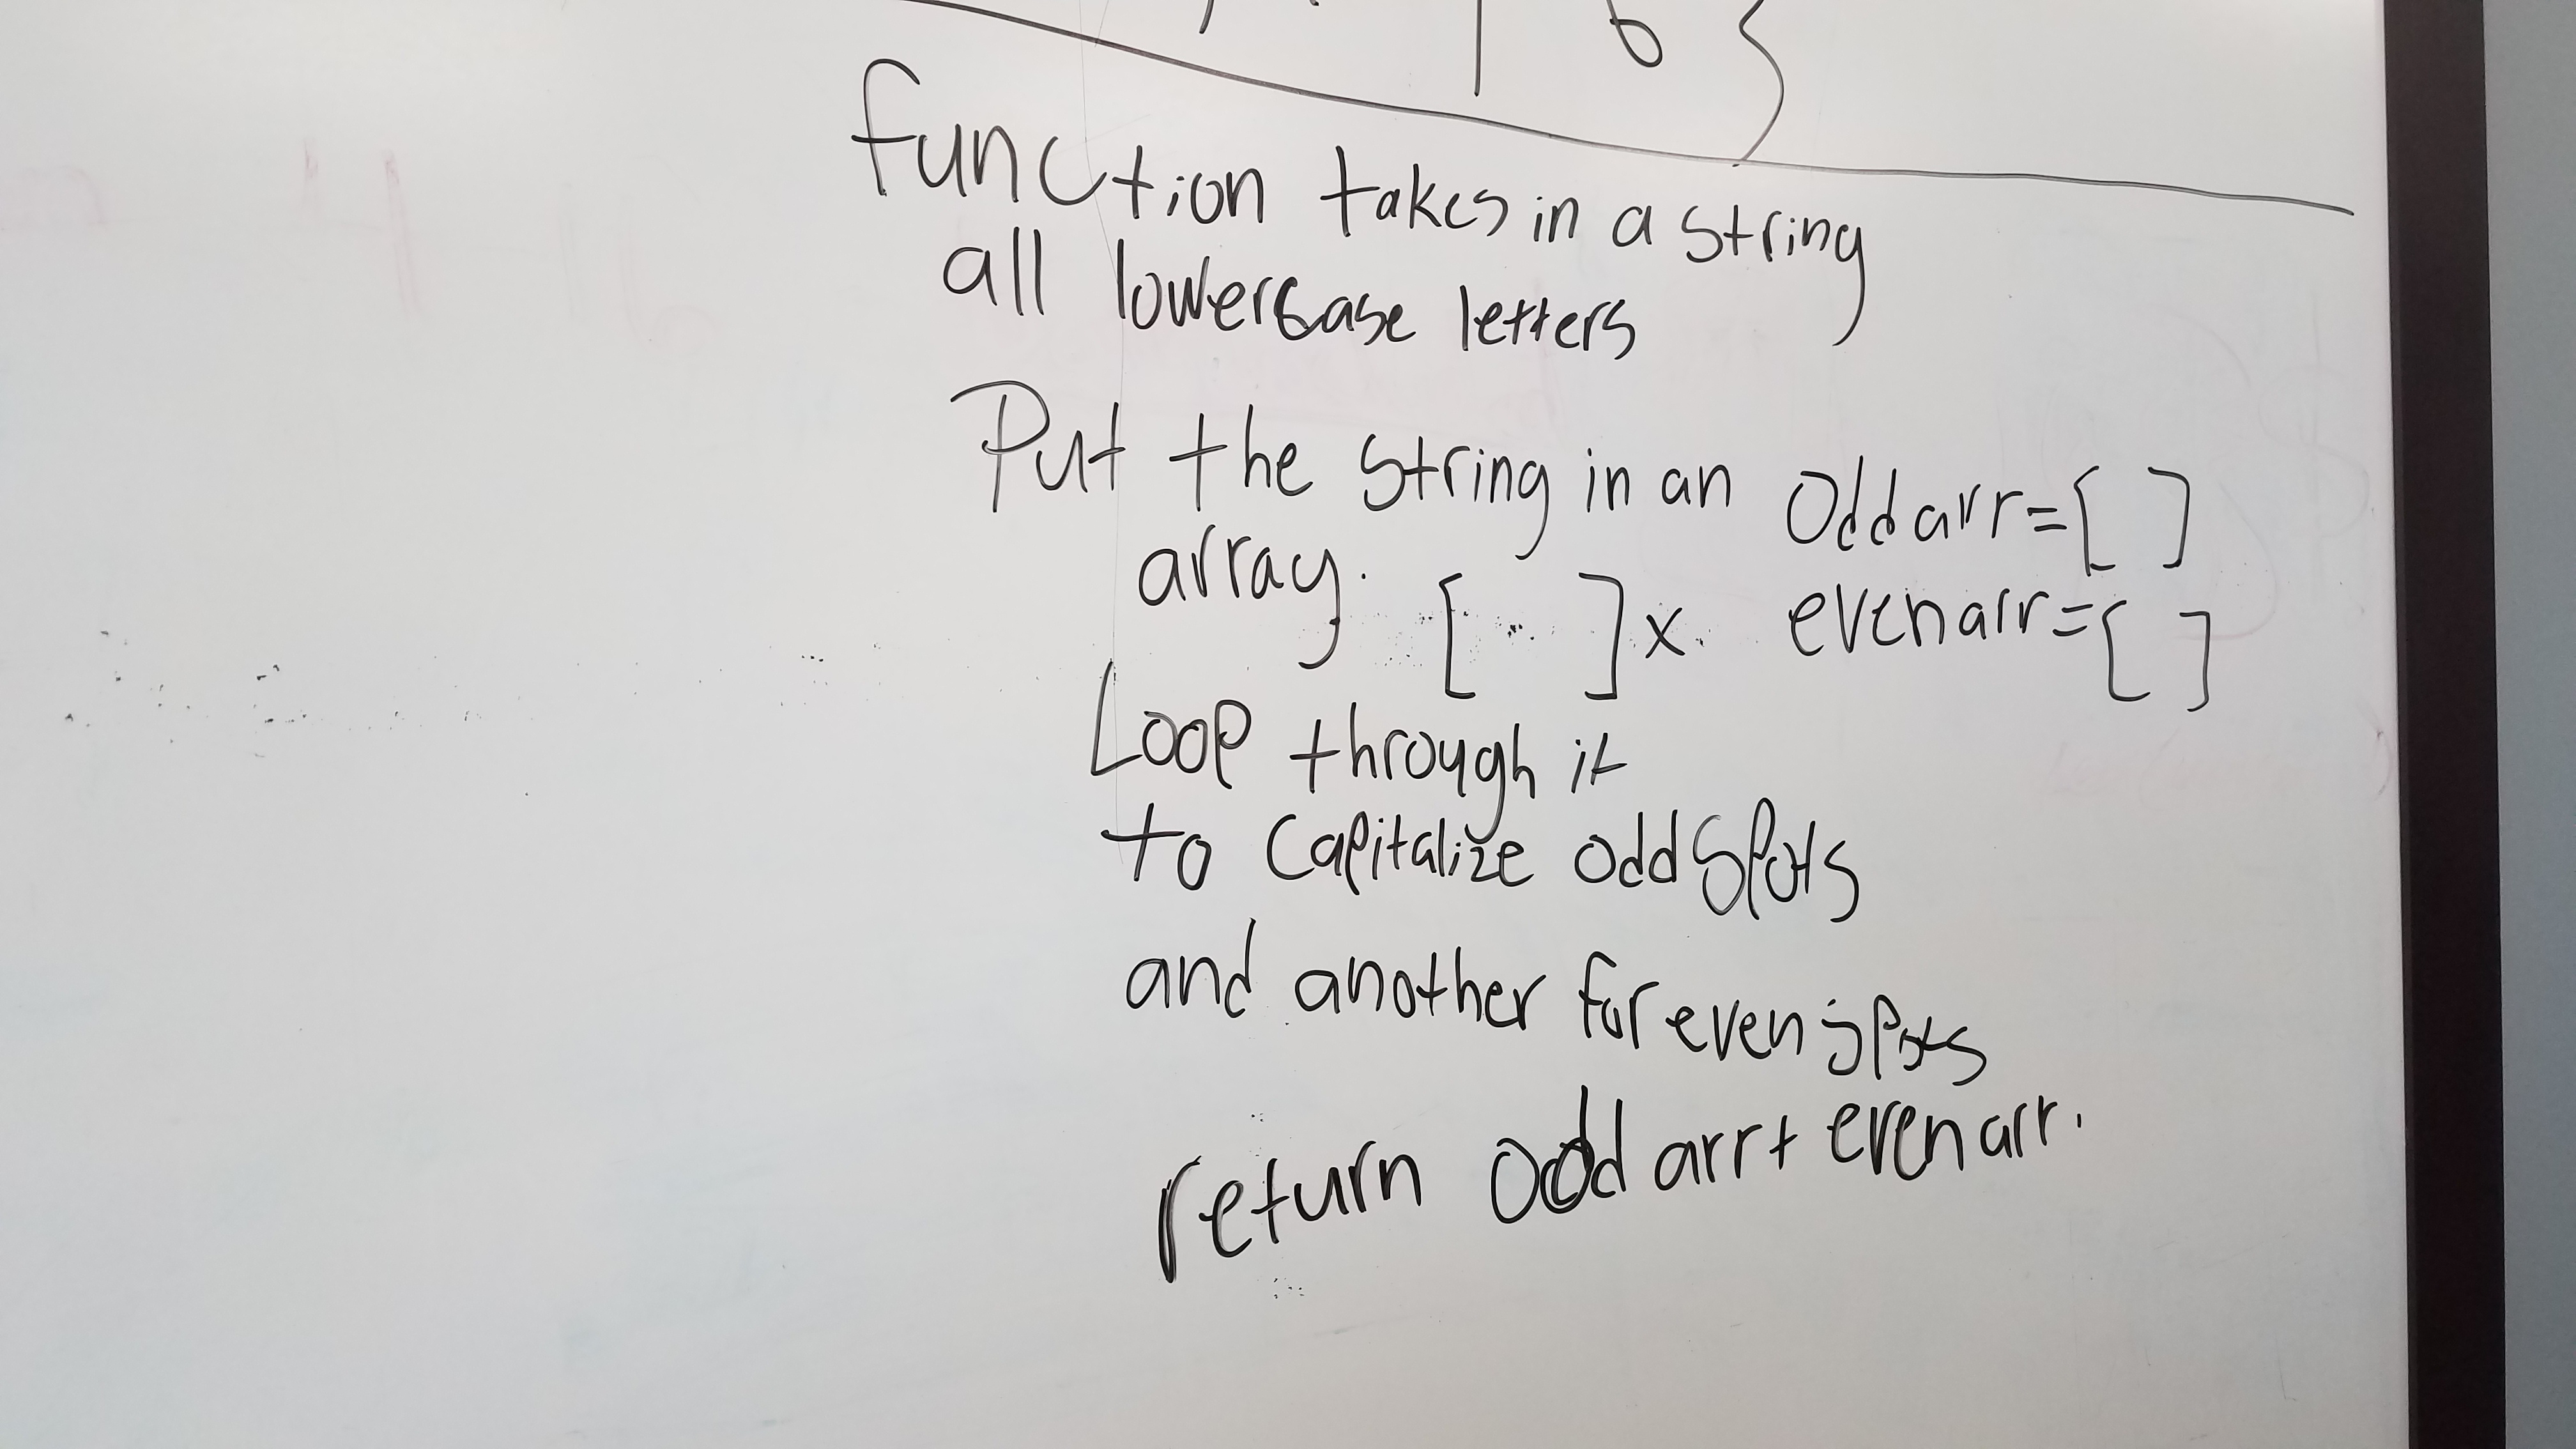 function takes in a string
all lowercase letters
Put the string in an
array. [ ] x.
Odd arr=[ ]
even arr=[ ]
Loop through it
to capitalize odd spots
and another for even spots
return odd arr + even arr.